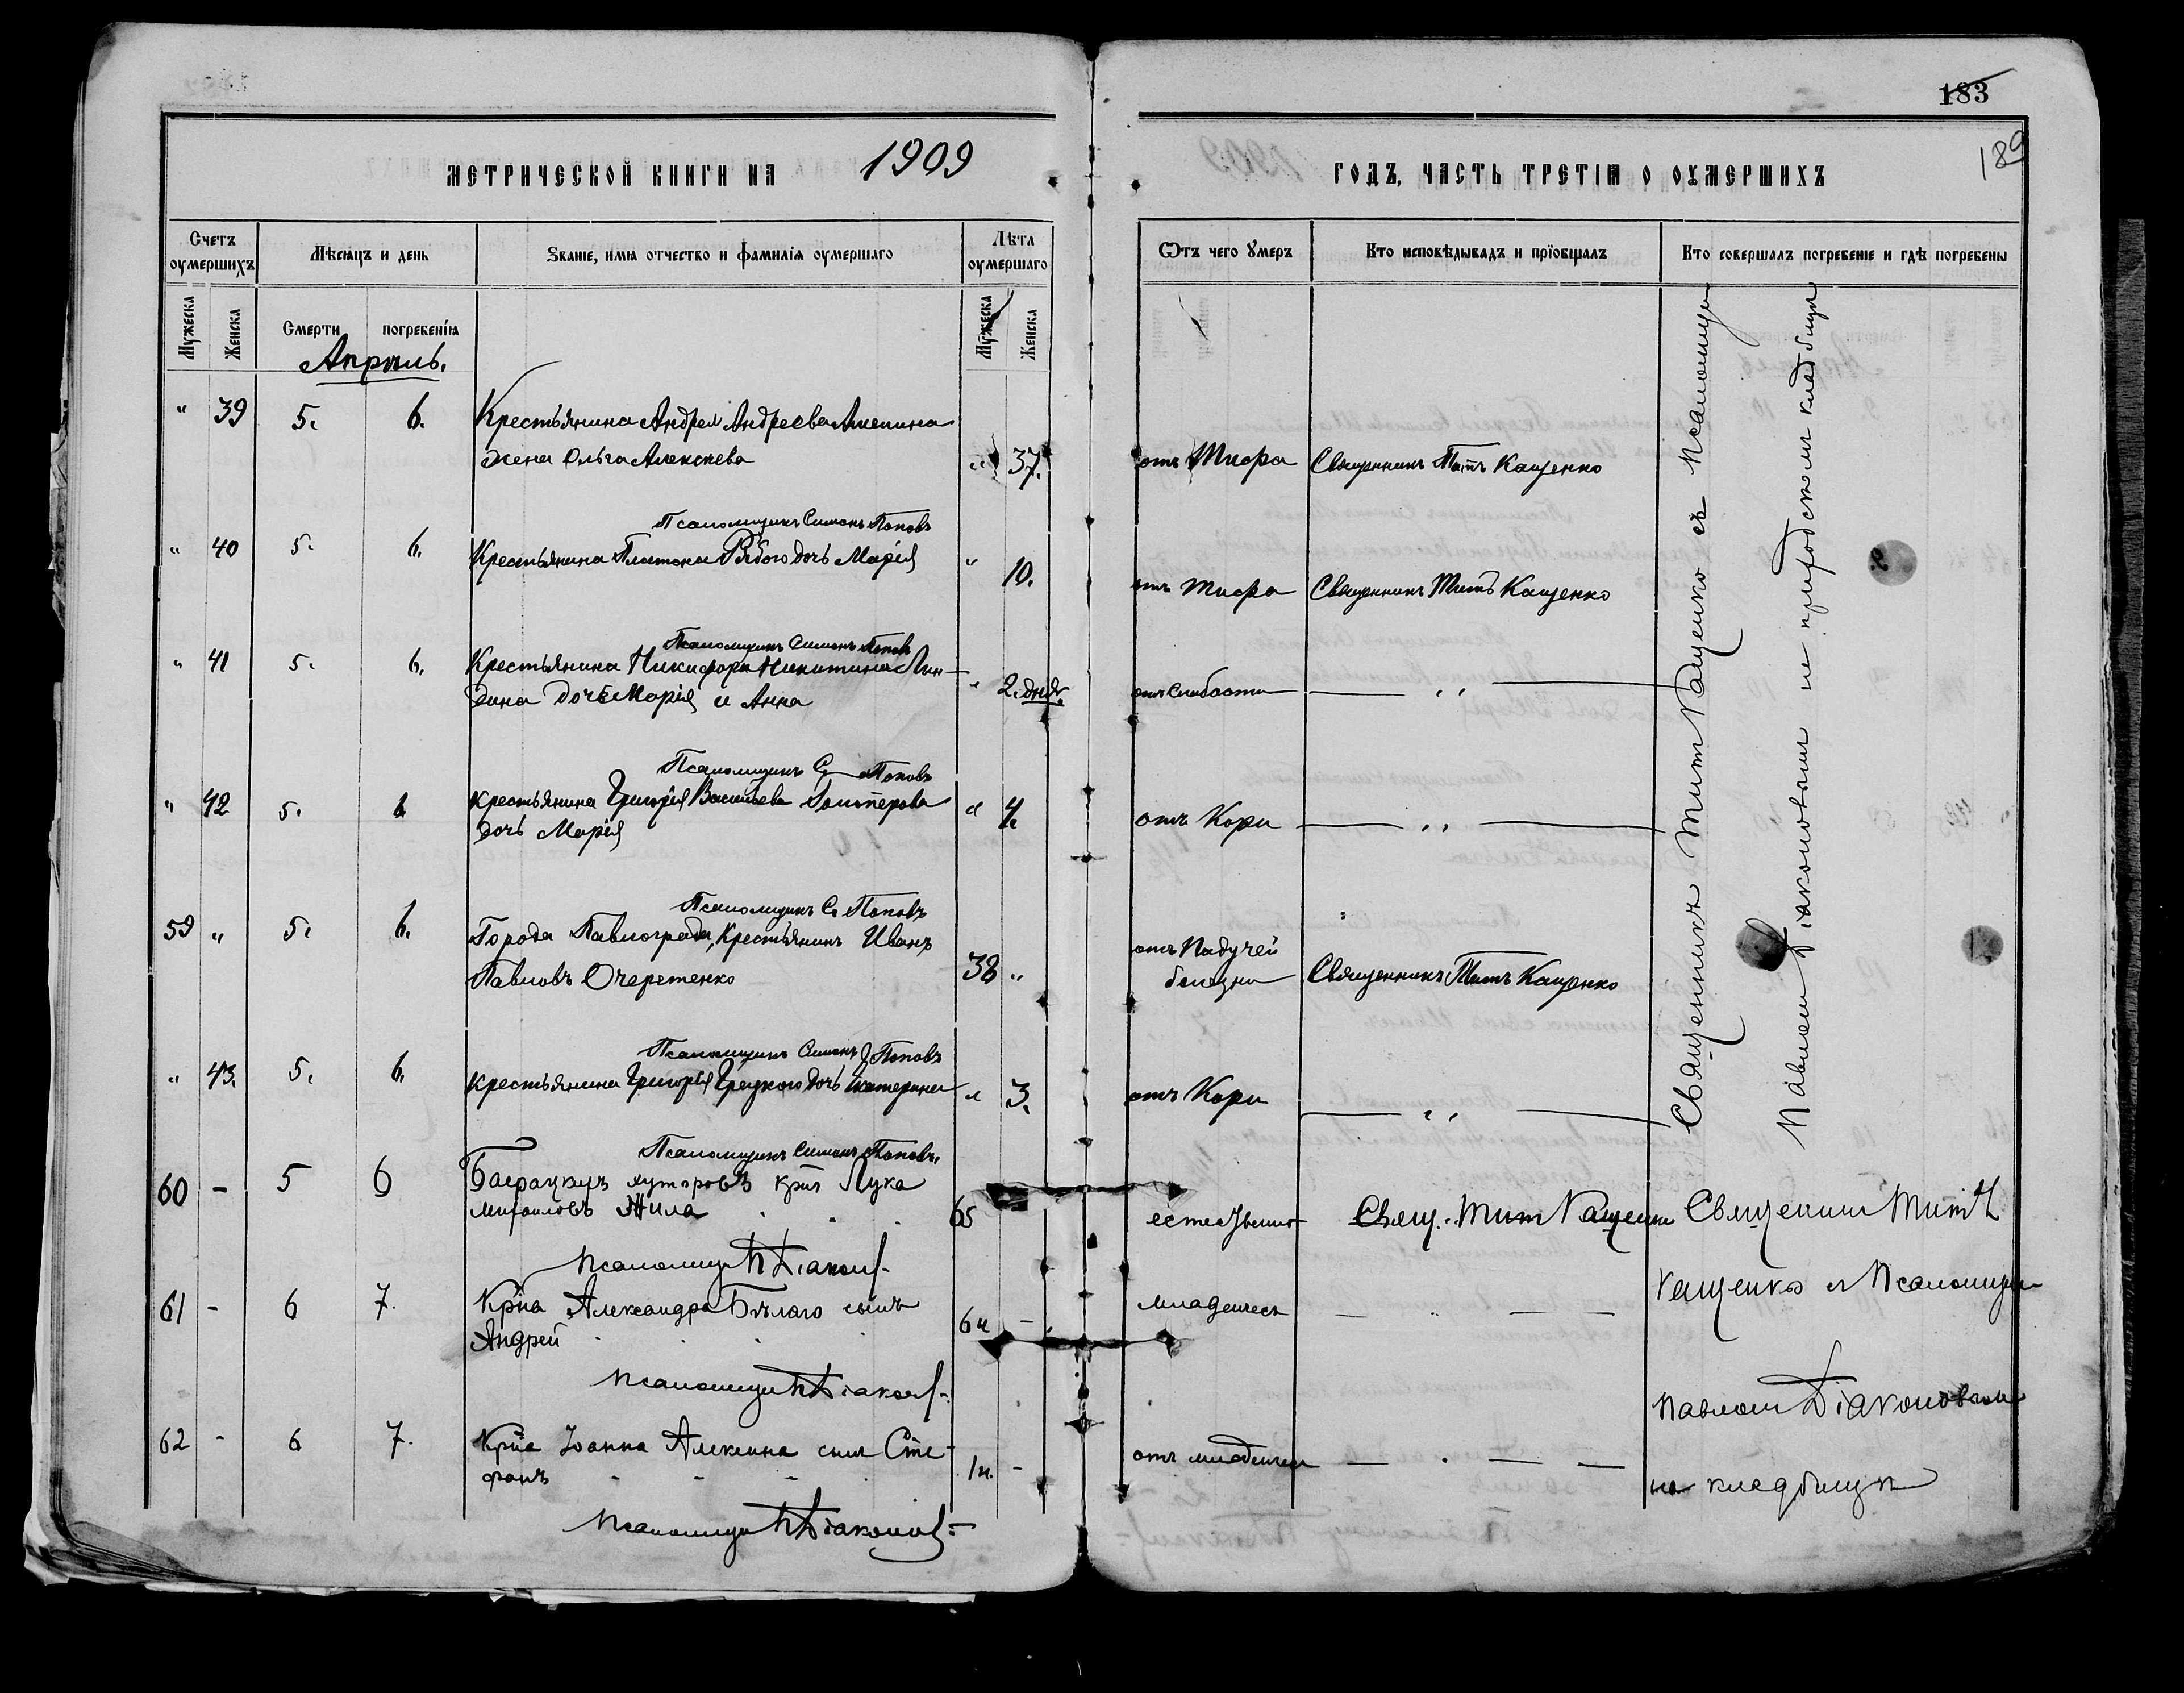 183
189
МЕТРИЧЕСКОЙ КНИГИ НА 1909 ГОДЪ, ЧАСТЬ ТРЕТІѦ О ОУМЕРШИХЪ
Счетъ оумершихъ
Мѣсѧцъ и день
Званіе, имѧ отчество и фамиліѧ оумершаго
Лѣта оумершаго
Ѿтъ чего Умеръ
Кто исповѣдывалъ и прїобщалъ
Кто совершалъ погребеніе и гдѣ погребены
Мужеска
Женска
Смерти
погребеніѧ
Мужеска
Женска
Апрѣль.
" 39 5. 6. Крестьянина Андрея Андреева
жена Ольга Алексѣева " 37. отъ Тифа Священникъ Титъ Кащенко
Псаломщикъ Симонъ Поповъ
" 40 5. 6. Крестьянина Платона Рябого дочь Марія " 10. отъ Тифа Священникъ Титъ Кащенко
Псаломщикъ Симонъ Поповъ
" 41 5. 6. Крестьянина Никифора Никитина Лын-
дина дочь Марія и Анна " 2. дня. отъ слабости — ,, —
Псаломщикъ С. Поповъ
" 42 5. 6 Крестьянина Григорія Васильева
дочь Марія " 4. отъ Кори — ,, —
Псаломщикъ С. Поповъ
59 " 5. 6. Города Павлограда, Крестьянинъ Иванъ
Павловъ Очеретенко 38 " отъ Падучей
болезни Священникъ Титъ Кащенко
Псаломщикъ Симонъ Поповъ
" 43. 5. 6. Крестьянина Григорія Грецкого дочь Екатерина " 3. отъ Кори — ,, —
Псаломщикъ Симонъ Поповъ.
Священникъ Титъ Кащенко съ Псаломщикомъ
Павломъ Діаконовымъ на приходскомъ кладбищѣ
60 - 5 6 хуторовъ кр̃нъ Лука
Михаиловъ Жила 65 Свящ. Титъ Кащенко
Псаломщикъ П. Діаконовъ
61 - 6 7. Кр̃на Александра Бѣлаго сынъ
Андрей 6 н - младенческ — ,, — —
Псаломщикъ П. Діаконовъ
62 - 6 7. Кр̃на Іоанна Алексина сынъ Сте-
фанъ 1 н. - отъ младенческ — . — —
Псаломщикъ П. Діаконовъ
Священникъ Титъ
Кащенко и Псаломщикъ
Павломъ Діаконовымъ
на кладбищѣ